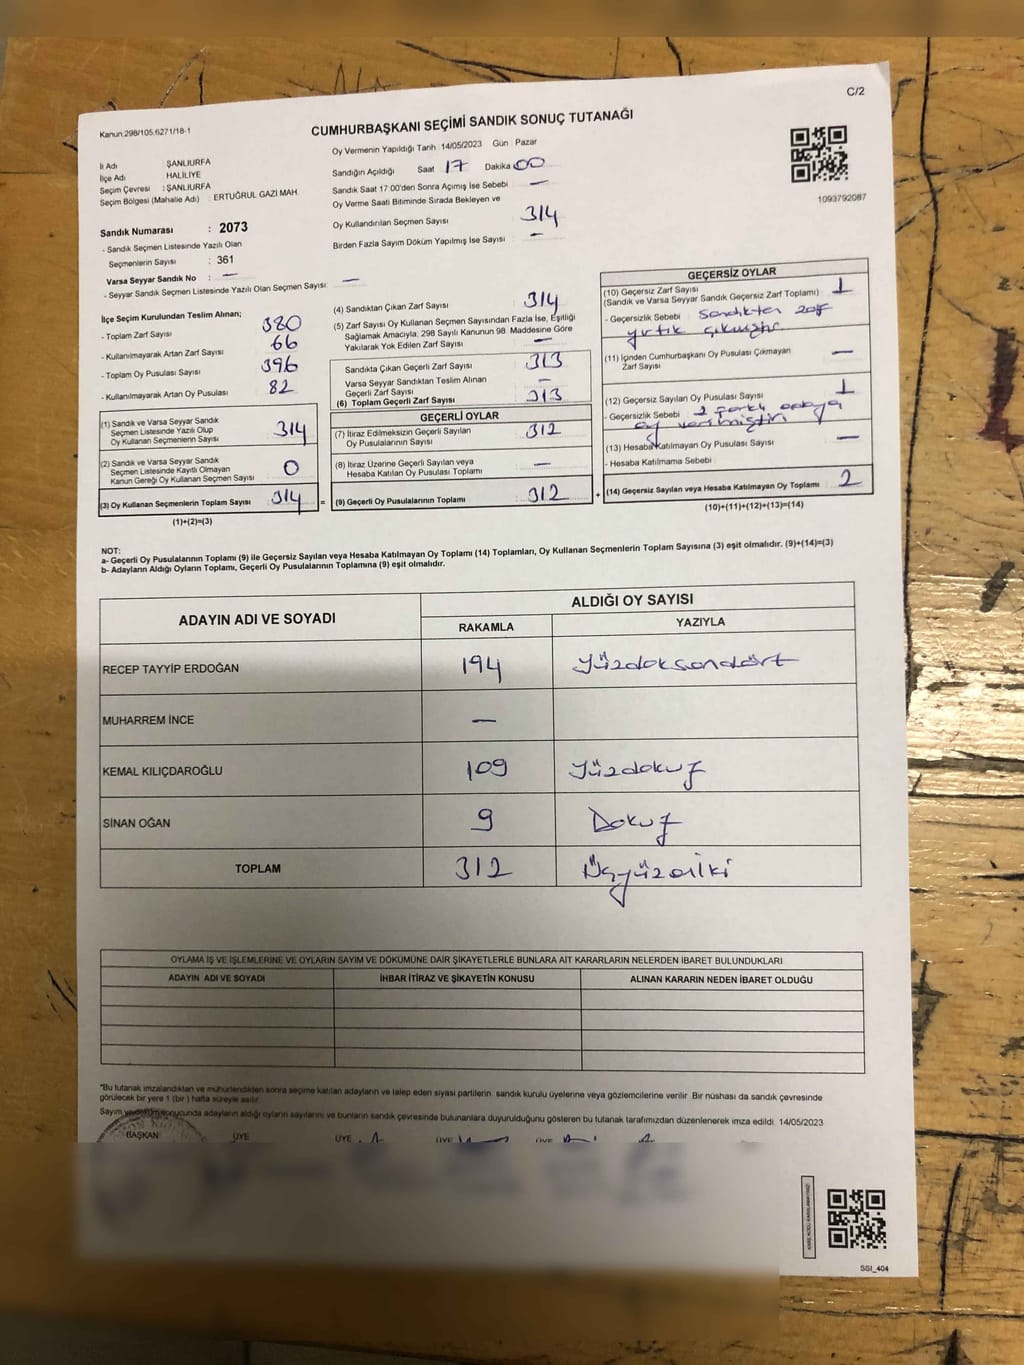 C/2
Kanun:298/105,6271/18-1
CUMHURBAŞKANI SEÇİMİ SANDIK SONUÇ TUTANAĞI
İli Adı ŞANLIURFA
İlçe Adı HALİLİYE
Seçim Çevresi : ŞANLIURFA
Seçim Bölgesi (Mahalle Adı) : ERTUĞRUL GAZİ MAH.
Sandık Numarası : 2073
- Sandık Seçmen Listesinde Yazılı Olan
Seçmenlerin Sayısı : 361
Varsa Seyyar Sandık No : —
- Seyyar Sandık Seçmen Listesinde Yazılı Olan Seçmen Sayısı : —
Oy Vermenin Yapıldığı Tarih 14/05/2023 Gün Pazar
Sandığın Açıldığı Saat 17 Dakika 00
Sandık Saat 17.00'den Sonra Açılmış İse Sebebi —
Oy Verme Saati Bitiminde Sırada Bekleyen ve
Oy Kullandırılan Seçmen Sayısı 314
Birden Fazla Sayım Döküm Yapılmış İse Sayısı : —
1093792087
İlçe Seçim Kurulundan Teslim Alınan;
- Toplam Zarf Sayısı : 380
- Kullanılmayarak Artan Zarf Sayısı : 66
- Toplam Oy Pusulası Sayısı : 396
- Kullanılmayarak Artan Oy Pusulası : 82
(1) Sandık ve Varsa Seyyar Sandık
Seçmen Listesinde Yazılı Olup
Oy Kullanan Seçmenlerin Sayısı : 314
(2) Sandık ve Varsa Seyyar Sandık
Seçmen Listesinde Kayıtlı Olmayan
Kanun Gereği Oy Kullanan Seçmen Sayısı : 0
(3) Oy Kullanan Seçmenlerin Toplam Sayısı : 314 =
(1)+(2)=(3)
(4) Sandıktan Çıkan Zarf Sayısı : 314
(5) Zarf Sayısı Oy Kullanan Seçmen Sayısından Fazla İse, Eşitliği
Sağlamak Amacıyla; 298 Sayılı Kanunun 98. Maddesine Göre
Yakılarak Yok Edilen Zarf Sayısı : —
Sandıkta Çıkan Geçerli Zarf Sayısı : 313
Varsa Seyyar Sandıktan Teslim Alınan
Geçerli Zarf Sayısı : —
(6) Toplam Geçerli Zarf Sayısı : 313
GEÇERLİ OYLAR
(7) İtiraz Edilmeksizin Geçerli Sayılan
Oy Pusulalarının Sayısı : 312
(8) İtiraz Üzerine Geçerli Sayılan veya
Hesaba Katılan Oy Pusulası Toplamı : —
(9) Geçerli Oy Pusulalarının Toplamı : 312 +
GEÇERSİZ OYLAR
(10) Geçersiz Zarf Sayısı : 1
(Sandık ve Varsa Seyyar Sandık Geçersiz Zarf Toplamı)
- Geçersizlik Sebebi : Sandıktan zarf
yırtık çıkmıştır.
(11) İçinden Cumhurbaşkanı Oy Pusulası Çıkmayan
Zarf Sayısı : —
(12) Geçersiz Sayılan Oy Pusulası Sayısı : 1
- Geçersizlik Sebebi : 2 farklı adaya
oy verilmiştir.
(13) Hesaba Katılmayan Oy Pusulası Sayısı : —
- Hesaba Katılmama Sebebi :
(14) Geçersiz Sayılan veya Hesaba Katılmayan Oy Toplamı : 2
(10)+(11)+(12)+(13)=(14)
NOT:
a- Geçerli Oy Pusulalarının Toplamı (9) ile Geçersiz Sayılan veya Hesaba Katılmayan Oy Toplamı (14) Toplamları, Oy Kullanan Seçmenlerin Toplam Sayısına (3) eşit olmalıdır. (9)+(14)=(3)
b- Adayların Aldığı Oyların Toplamı, Geçerli Oy Pusulalarının Toplamına (9) eşit olmalıdır.
ADAYIN ADI VE SOYADI
ALDIĞI OY SAYISI
RAKAMLA YAZIYLA
RECEP TAYYİP ERDOĞAN 194 Yüzdoksandört
MUHARREM İNCE —
KEMAL KILIÇDAROĞLU 109 Yüzdokuz
SİNAN OĞAN 9 Dokuz
TOPLAM 312 Üçyüzoniki
OYLAMA İŞ VE İŞLEMLERİNE VE OYLARIN SAYIM VE DÖKÜMÜNE DAİR ŞİKAYETLERLE BUNLARA AİT KARARLARIN NELERDEN İBARET BULUNDUKLARI
ADAYIN ADI VE SOYADI İHBAR İTİRAZ VE ŞİKAYETİN KONUSU ALINAN KARARIN NEDEN İBARET OLDUĞU
*Bu tutanak imzalandıktan ve mühürlendikten sonra seçime katılan adayların ve talep eden siyasi partilerin sandık kurulu üyelerine veya gözlemcilerine verilir. Bir nüshası da sandık çevresinde
görülecek bir yere 1 (bir) hafta süreyle asılır.
Sayım ve döküm sonucunda adayların aldığı oyların sayılarını ve bunların sandık çevresinde bulunanlara duyurulduğunu gösteren bu tutanak tarafımızdan düzenlenerek imza edildi. 14/05/2023
BAŞKAN ÜYE ÜYE ÜYE ÜYE
SSI_404